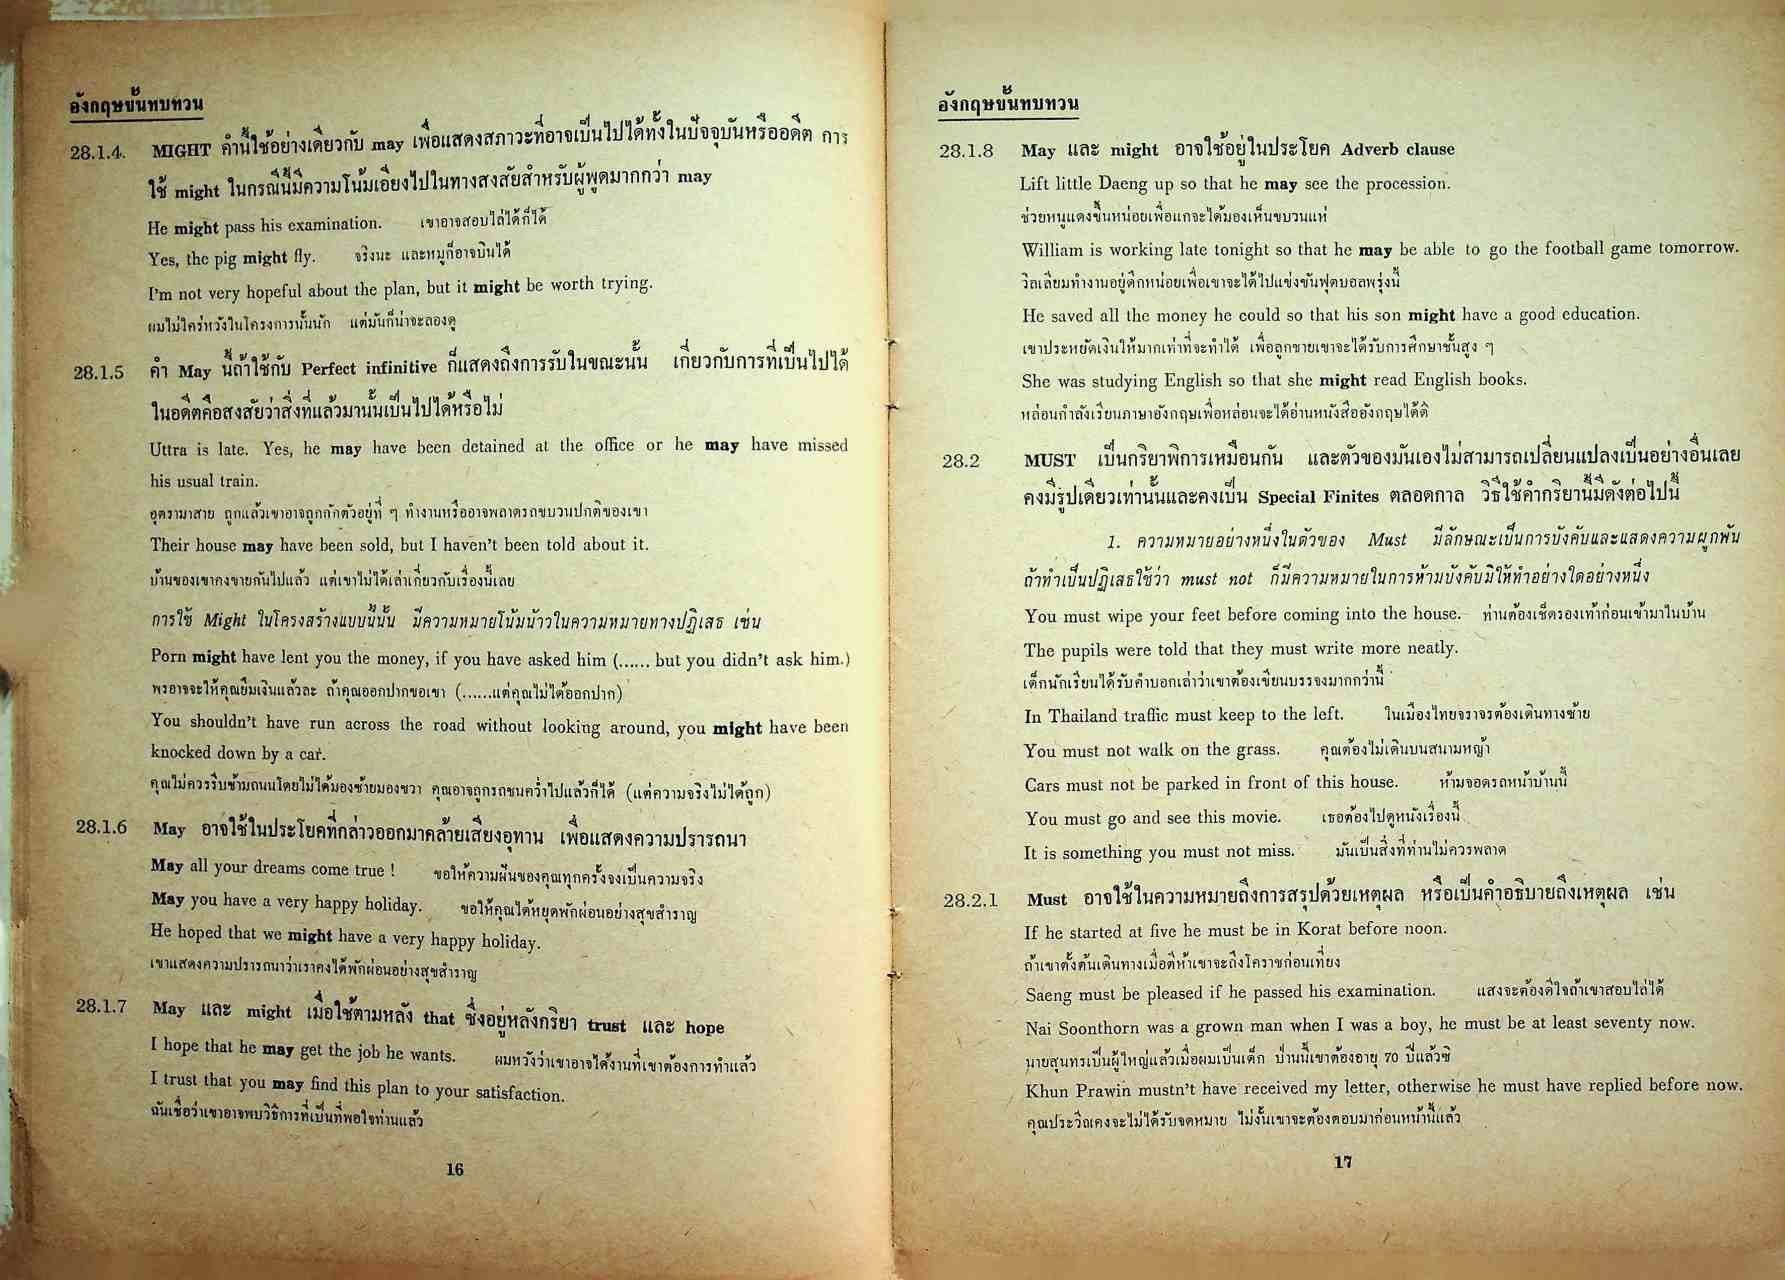 อังกฤษขั้นทบทวน
28.1.4. MIGHT คำนี้ใช้อย่างเดียวกับ may เพื่อแสดงสภาวะที่อาจเป็นไปได้ทั้งในปัจจุบันหรืออดีต การ
ใช้ might ในกรณีนี้มีความโน้มเอียงไปในทางสงสัยสำหรับผู้พูดมากกว่า may
He might pass his examination. เขาอาจสอบไล่ได้ก็ได้
Yes, the pig might fly. จริงนะ และหมูก็อาจบินได้
I'm not very hopeful about the plan, but it might be worth trying.
ผมไม่ใคร่หวังในโครงการนั้นนัก แต่มันก็น่าจะลองดู
28.1.5 คำ May นี้ถ้าใช้กับ Perfect infinitive ก็แสดงถึงการรับในขณะนั้น เกี่ยวกับการที่เป็นไปได้
ในอดีตคือสงสัยว่าสิ่งที่แล้วมานั้นเป็นไปได้หรือไม่
Uttra is late. Yes, he may have been detained at the office or he may have missed
his usual train.
อุตรามาสาย ถูกแล้วเขาอาจถูกกักตัวอยู่ที่ ๆ ทำงานหรืออาจพลาดรถขบวนปกติของเขา
Their house may have been sold, but I haven't been told about it.
บ้านของเขาคงขายกันไปแล้ว แต่เขาไม่ได้เล่าเกี่ยวกับเรื่องนี้เลย
การใช้ Might ในโครงสร้างแบบนี้นั้น มีความหมายโน้มน้าวในความหมายทางปฏิเสธ เช่น
Porn might have lent you the money, if you have asked him (...... but you didn't ask him.)
พรอาจจะให้คุณยืมเงินแล้วละ ถ้าคุณออกปากขอเขา (......แต่คุณไม่ได้ออกปาก)
You shouldn't have run across the road without looking around, you might have been
knocked down by a car.
คุณไม่ควรรีบข้ามถนนโดยไม่ได้มองซ้ายมองขวา คุณอาจถูกรถชนคว่ำไปแล้วก็ได้ (แต่ความจริงไม่ได้ถูก)
28.1.6 May อาจใช้ในประโยคที่กล่าวออกมาคล้ายเสียงอุทาน เพื่อแสดงความปรารถนา
May all your dreams come true ! ขอให้ความฝันของคุณทุกครั้งจงเป็นความจริง
May you have a very happy holiday. ขอให้คุณได้หยุดพักผ่อนอย่างสุขสำราญ
He hoped that we might have a very happy holiday.
เขาแสดงความปรารถนาว่าเราคงได้พักผ่อนอย่างสุขสำราญ
28.1.7 May และ might เมื่อใช้ตามหลัง that ซึ่งอยู่หลังกริยา trust และ hope
I hope that he may get the job he wants. ผมหวังว่าเขาอาจได้งานที่เขาต้องการทำแล้ว
I trust that you may find this plan to your satisfaction.
ฉันเชื่อว่าเขาอาจพบวิธีการที่เป็นที่พอใจท่านแล้ว
16
อังกฤษขั้นทบทวน
28.1.8 May และ might อาจใช้อยู่ในประโยค Adverb clause
Lift little Daeng up so that he may see the procession.
ช่วยหนูแดงขึ้นหน่อยเพื่อแกจะได้มองเห็นขบวนแห่
William is working late tonight so that he may be able to go the football game tomorrow.
วิลเลียมทำงานอยู่ดึกหน่อยเพื่อเขาจะได้ไปแข่งขันฟุตบอลพรุ่งนี้
He saved all the money he could so that his son might have a good education.
เขาประหยัดเงินให้มากเท่าที่จะทำได้ เพื่อลูกชายเขาจะได้รับการศึกษาชั้นสูง ๆ
She was studying English so that she might read English books.
หล่อนกำลังเรียนภาษาอังกฤษเพื่อหล่อนจะได้อ่านหนังสืออังกฤษได้ดี
28.2 MUST เป็นกริยาพิการเหมือนกัน และตัวของมันเองไม่สามารถเปลี่ยนแปลงเป็นอย่างอื่นเลย
คงมีรูปเดียวเท่านั้นและคงเป็น Special Finites ตลอดกาล วิธีใช้คำกริยานี้มีดังต่อไปนี้
1. ความหมายอย่างหนึ่งในตัวของ Must มีลักษณะเป็นการบังคับและแสดงความผูกพัน
ถ้าทำเป็นปฏิเสธใช้ว่า must not ก็มีความหมายในการห้ามบังคับมิให้ทำอย่างใดอย่างหนึ่ง
You must wipe your feet before coming into the house. ท่านต้องเช็ดรองเท้าก่อนเข้ามาในบ้าน
The pupils were told that they must write more neatly.
เด็กนักเรียนได้รับคำบอกเล่าว่าเขาต้องเขียนบรรจงมากกว่านี้
In Thailand traffic must keep to the left. ในเมืองไทยจราจรต้องเดินทางซ้าย
You must not walk on the grass. คุณต้องไม่เดินบนสนามหญ้า
Cars must not be parked in front of this house. ห้ามจอดรถหน้าบ้านนี้
You must go and see this movie. เธอต้องไปดูหนังเรื่องนี้
It is something you must not miss. มันเป็นสิ่งที่ท่านไม่ควรพลาด
28.2.1 Must อาจใช้ในความหมายถึงการสรุปด้วยเหตุผล หรือเป็นคำอธิบายถึงเหตุผล เช่น
If he started at five he must be in Korat before noon.
ถ้าเขาตั้งต้นเดินทางเมื่อตีห้าเขาจะถึงโคราชก่อนเที่ยง
Saeng must be pleased if he passed his examination. แสงจะต้องดีใจถ้าเขาสอบไล่ได้
Nai Soonthorn was a grown man when I was a boy, he must be at least seventy now.
นายสุนทรเป็นผู้ใหญ่แล้วเมื่อผมเป็นเด็ก ป่านนี้เขาต้องอายุ 70 ปีแล้วซิ
Khun Prawin mustn't have received my letter, otherwise he must have replied before now.
คุณประวิณคงจะไม่ได้รับจดหมาย ไม่งั้นเขาจะต้องตอบมาก่อนหน้านี้แล้ว
17